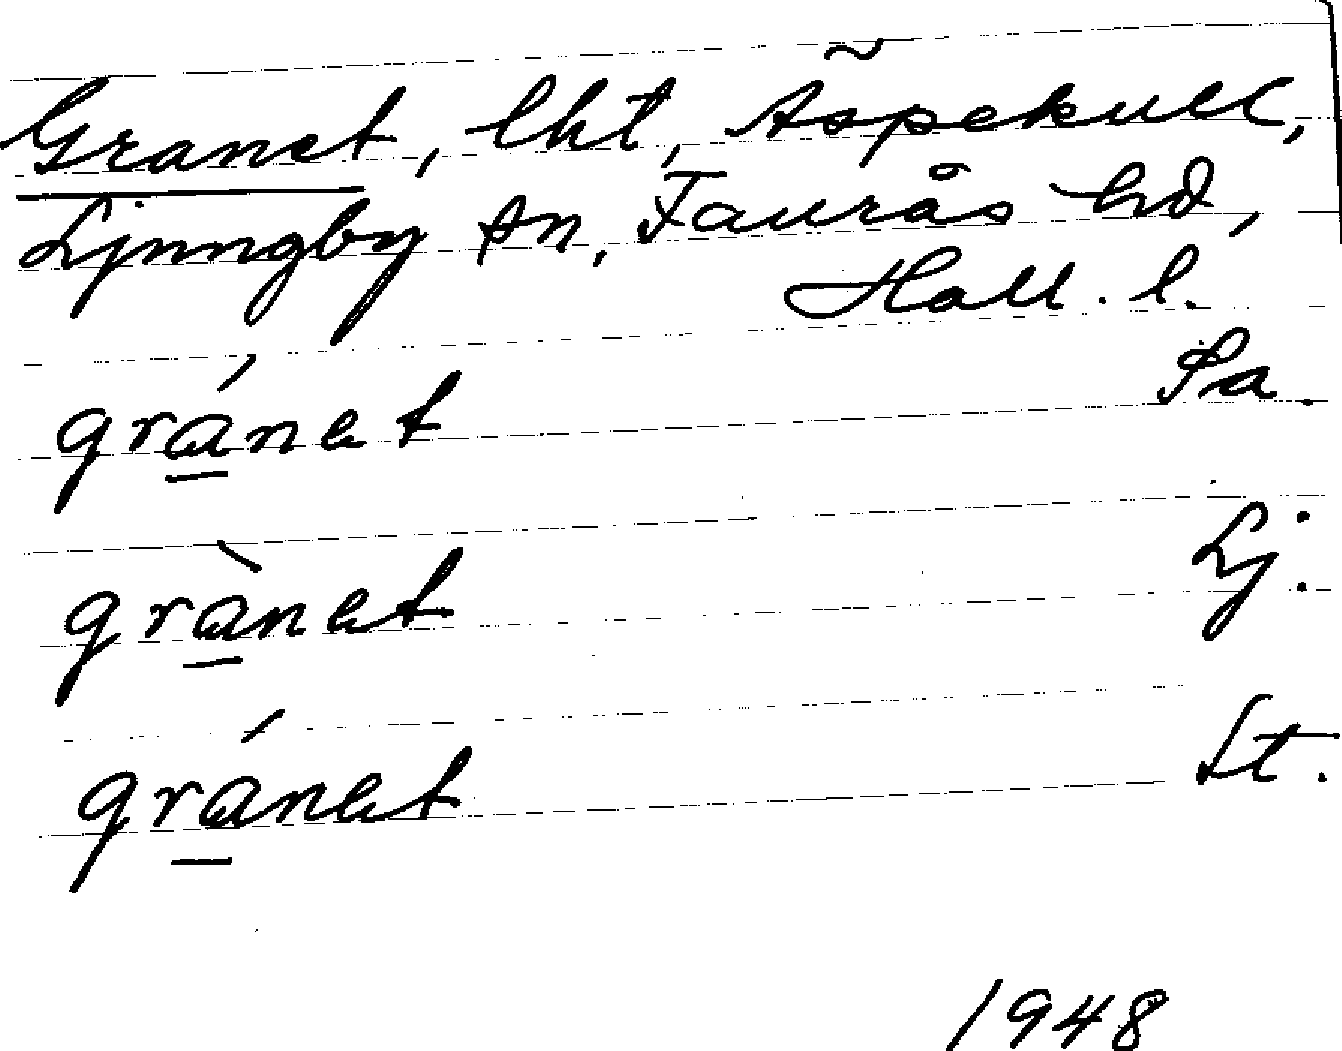 Granet, lht, Äspekull,
Ljungby sn, Faurås hd,
Hall. l.
gránet Sa.
grànet Lj.
gránet St.
1948